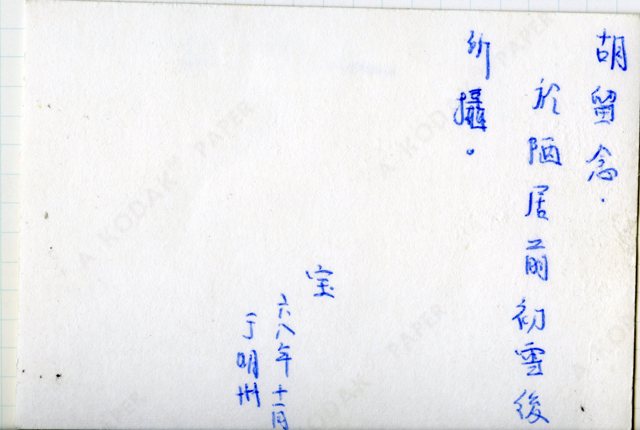 胡留念.
於陋居前初雪後
所攝.
宝
六八年十一月
于明州
A KODAK PAPER
A KODAK PAPER
A KODAK PAPER